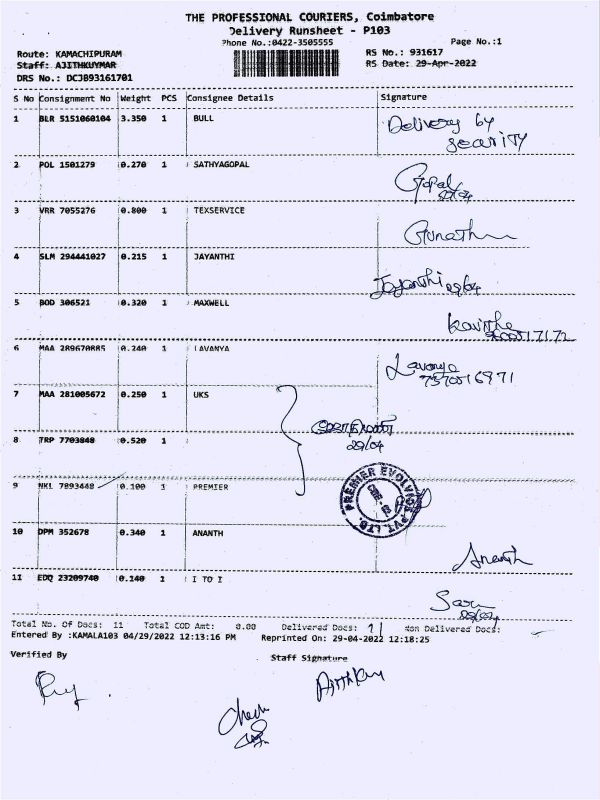 THE PROFESSIONAL COURIERS, Coimbatore
Delivery Runsheet - P103
Phone No.:0422-3505555 Page No.:1
Route: KAMACHIPURAM RS No.: 931617
Staff: AJITHKUYMAR RS Date: 29-Apr-2022
DRS No.: DCJB93161701
S No Consignment No Weight PCS Consignee Details Signature
1 BLR 5151060104 3.350 1 BULL Delivery by
security
2 POL 1501279 0.270 1 SATHYAGOPAL Gopal
3 VRR 7055276 0.800 1 TEXSERVICE
4 SLM 294441027 0.215 1 JAYANTHI Jayanthi 29/04
5 BOD 306521 0.320 1 MAXWELL Kavitha
6 MAA 289670885 0.240 1 LAVANYA Lavanya
7 MAA 281005672 0.250 1 UKS
29/04
8 TRP 7703848 0.520 1
9 NKL 7893448 0.100 1 PREMIER
PREMIER EVOLVICS PVT. LTD.
10 DPM 352678 0.340 1 ANANTH Ananth
11 EDQ 23209740 0.140 1 I TO I
Total No. Of Docs: 11 Total COD Amt: 0.00 Delivered Docs: 11 Non Delivered Docs:
Entered By :KAMALA103 04/29/2022 12:13:16 PM Reprinted On: 29-04-2022 12:18:25
Verified By Staff Signature